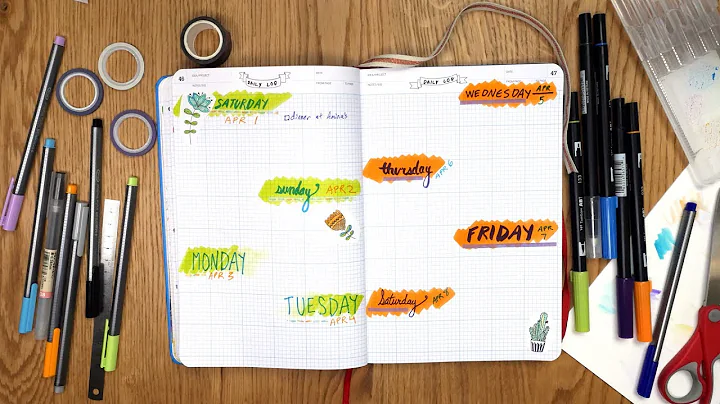 46
DAILY LOG
SATURDAY
APR 1
dinner at Anina's
sunday
APR 2
MONDAY
APR 3
TUESDAY
APR 4
47
DAILY LOG
WEDNESDAY
APR
5
thursday
APR 6
FRIDAY
APR
7
Saturday
APR 8